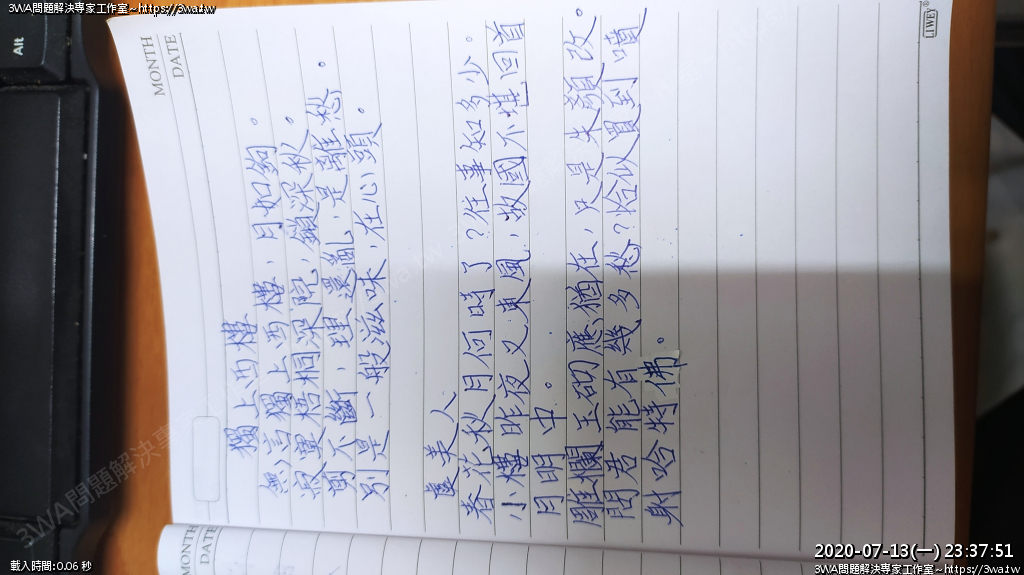 3WA問題解決專家工作室~https://3wa.tw
MONTH
DATE
獨上西樓
無言獨上西樓,月如鉤。
寂寞梧桐深院,鎖深秋。
剪不斷,理還亂,是離愁。
別是一般滋味,在心頭。
虞美人
春花秋月何時了?往事知多少。
小樓昨夜又東風,故國不堪回首
月明中。
雕欄玉砌應猶在,只是朱顏改。
問君能有幾多愁?恰似買到噴
射哈特佛。
MONTH
DATE
Alt
2020-07-13(一) 23:37:51
載入時間:0.06 秒
3WA問題解決專家工作室~https://3wa.tw